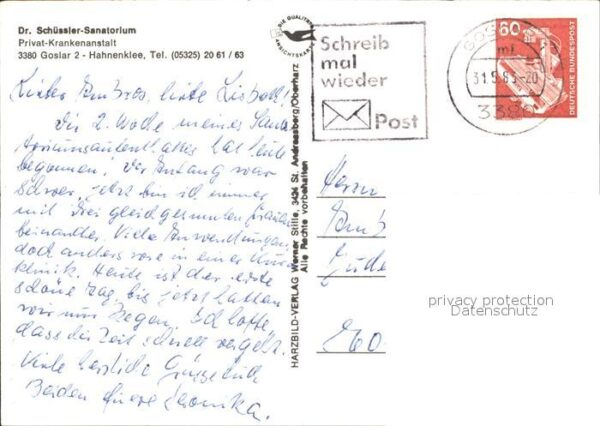 Dr. Schüssler-Sanatorium
Privat-Krankenanstalt
3380 Goslar 2 - Hahnenklee, Tel. (05325) 20 61 / 63
Lieber Ambros, liebe Lisbeth!
Die 2. Woche meines Sana-
toriumsaufenthaltes hat heute
begonnen! Der Anfang war
schwer, jetzt bin ich immer
mit drei gleichgesinnten Frauen
beinander. Viele Anwendungen,
doch anders wie in einer Kur-
klinik. Heute ist der erste
schöne Tag bis jetzt hatten
wir nur Regen. Ich hoffe,
dass die Zeit schnell vergeht.
Viele herzliche Grüsse Euch
Beiden Eure
DIE QUALITÄTS
ANSICHTSKARTE
HARZBILD-VERLAG Werner Stille, 3424 St. Andreasberg/Oberharz
Alle Rechte vorbehalten
Schreib
mal
wieder
Post
GOS
mf
31.5.83-20
3380
60
DEUTSCHE BUNDESPOST
Herrn
Amb
privacy protection
Datenschutz